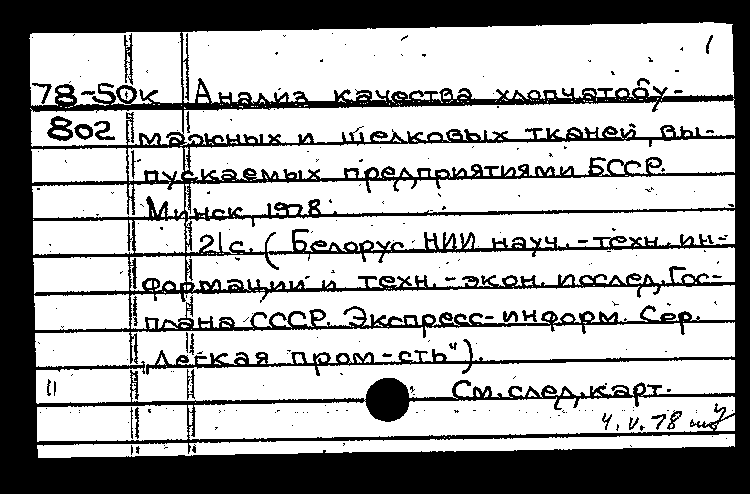 1
78-50к Анализ качества хлопчатобу-
802 мажных и шелковых тканей, вы-
пускаемых предприятиями БССР.
Минск, 1978.
21с. (Белорус НИИ науч.-техн. ин-
формации и техн.-экон. исслед. Гос-
плана СССР. Экспресс-информ. Сер.
"Легкая пром-сть").
11 См. след. карт.
4.V.78